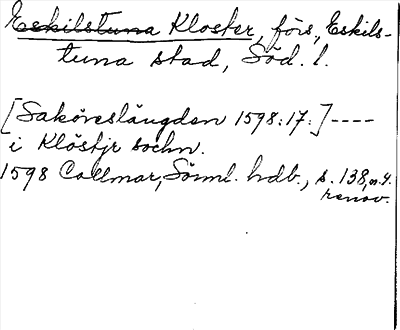 Eskilstuna Kloster, förs., Eskils-
tuna stad, Söd. l.
[Saköreslängden 1598:17:]----
i Klöstjr sochn.
1598 Collmar, Sörml. hdb., s. 138, n. 4.
renov.